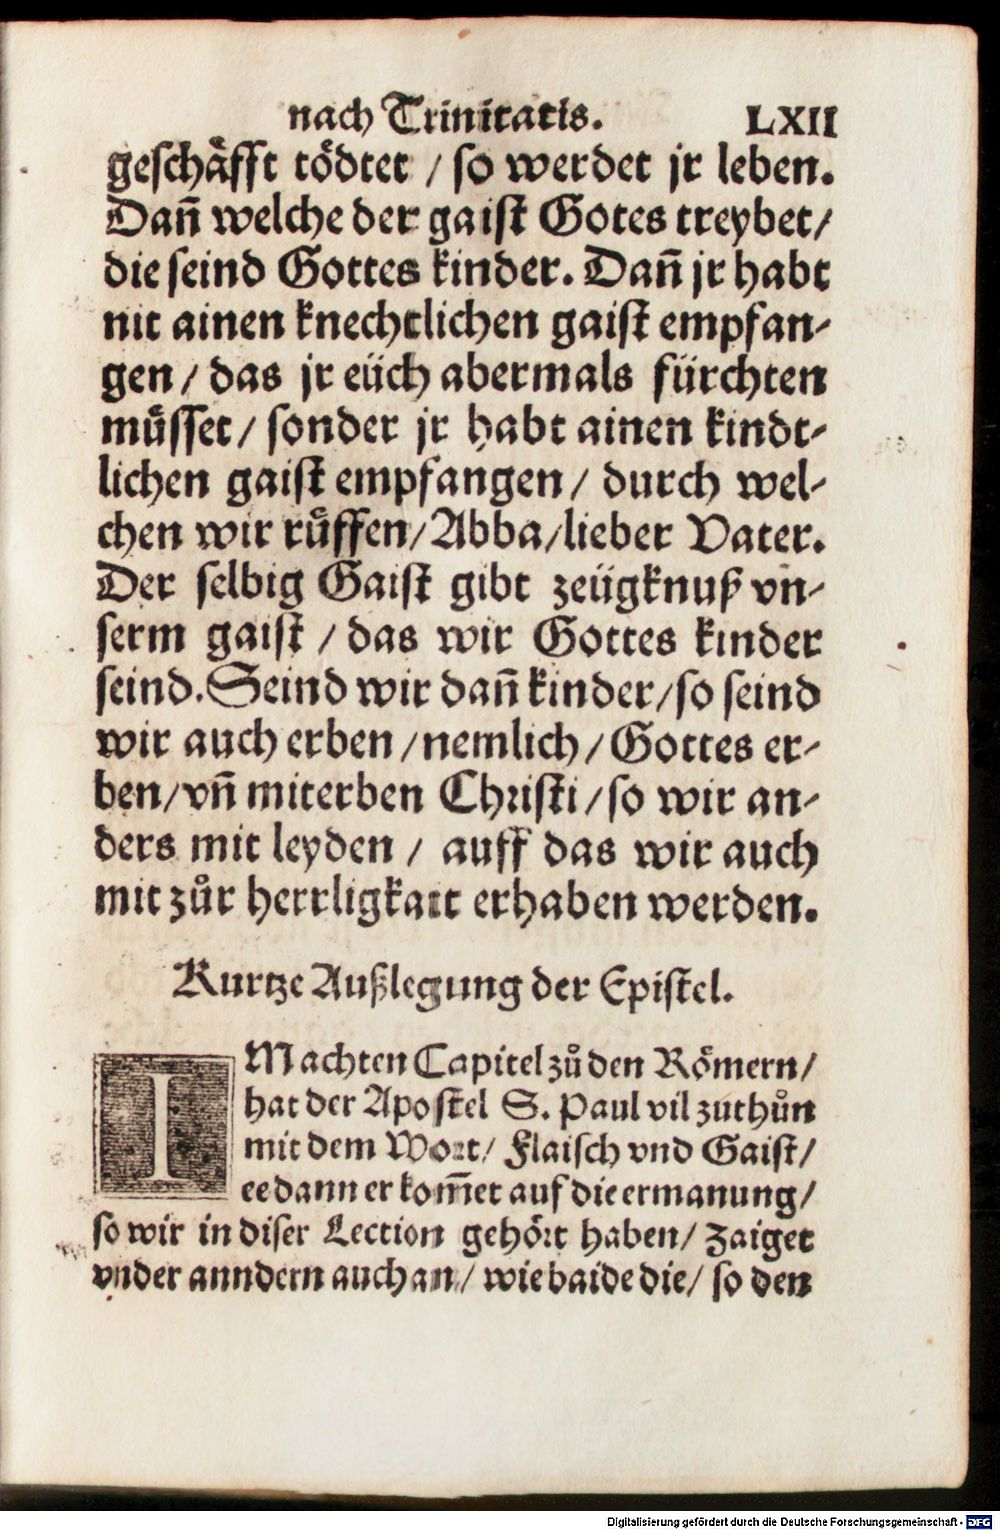 nach Trinitatis. LXII
geschaͤfft toͤdtet / so werdet jr leben.
Dañ welche der gaist Gotes treybet/
die seind Gottes kinder. Dañ jr habt
nit ainen knechtlichen gaist empfan-
gen / das jr eüch abermals fürchten
muͤsset / sonder jr habt ainen kindt-
lichen gaist empfangen / durch wel-
chen wir ruͤffen/Abba/lieber Vater.
Der selbig Gaist gibt zeügknuß vn-
serm gaist / das wir Gottes kinder
seind. Seind wir dañ kinder/so seind
wir auch erben /nemlich / Gottes er-
ben/vñ miterben Christi/so wir an-
ders mit leyden / auff das wir auch
mit zuͦr herrligkait erhaben werden.
Kurtze Außlegung der Epistel.
IM achten Capitel zuͦ den Roͤmern/
hat der Apostel S. Paul vil zuthuͦn
mit dem Wort/ Flaisch vnd Gaist/
ee dann er kom̃et auf die ermanung/
so wir in diser Lection gehoͤrt haben/ Zaiget
vnder anndern auch an/ wie baide die/ so den
Digitalisierung gefördert durch die Deutsche Forschungsgemeinschaft - DFG